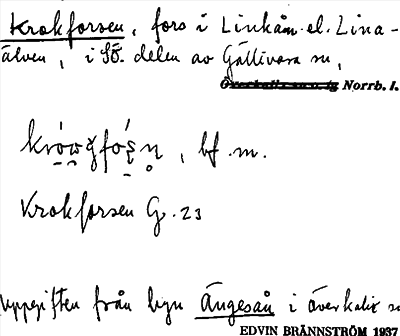 Krokforsen, fors i Linkån el. Lina-
älven, i SÖ. delen av Gällivara sn,
Överkalix sn o. tg Norrb. l.
, bf. m.
Krokforsen G. 23
Uppgiften från byn Ängesån i Överkalix s
EDVIN BRÄNNSTRÖM 1937